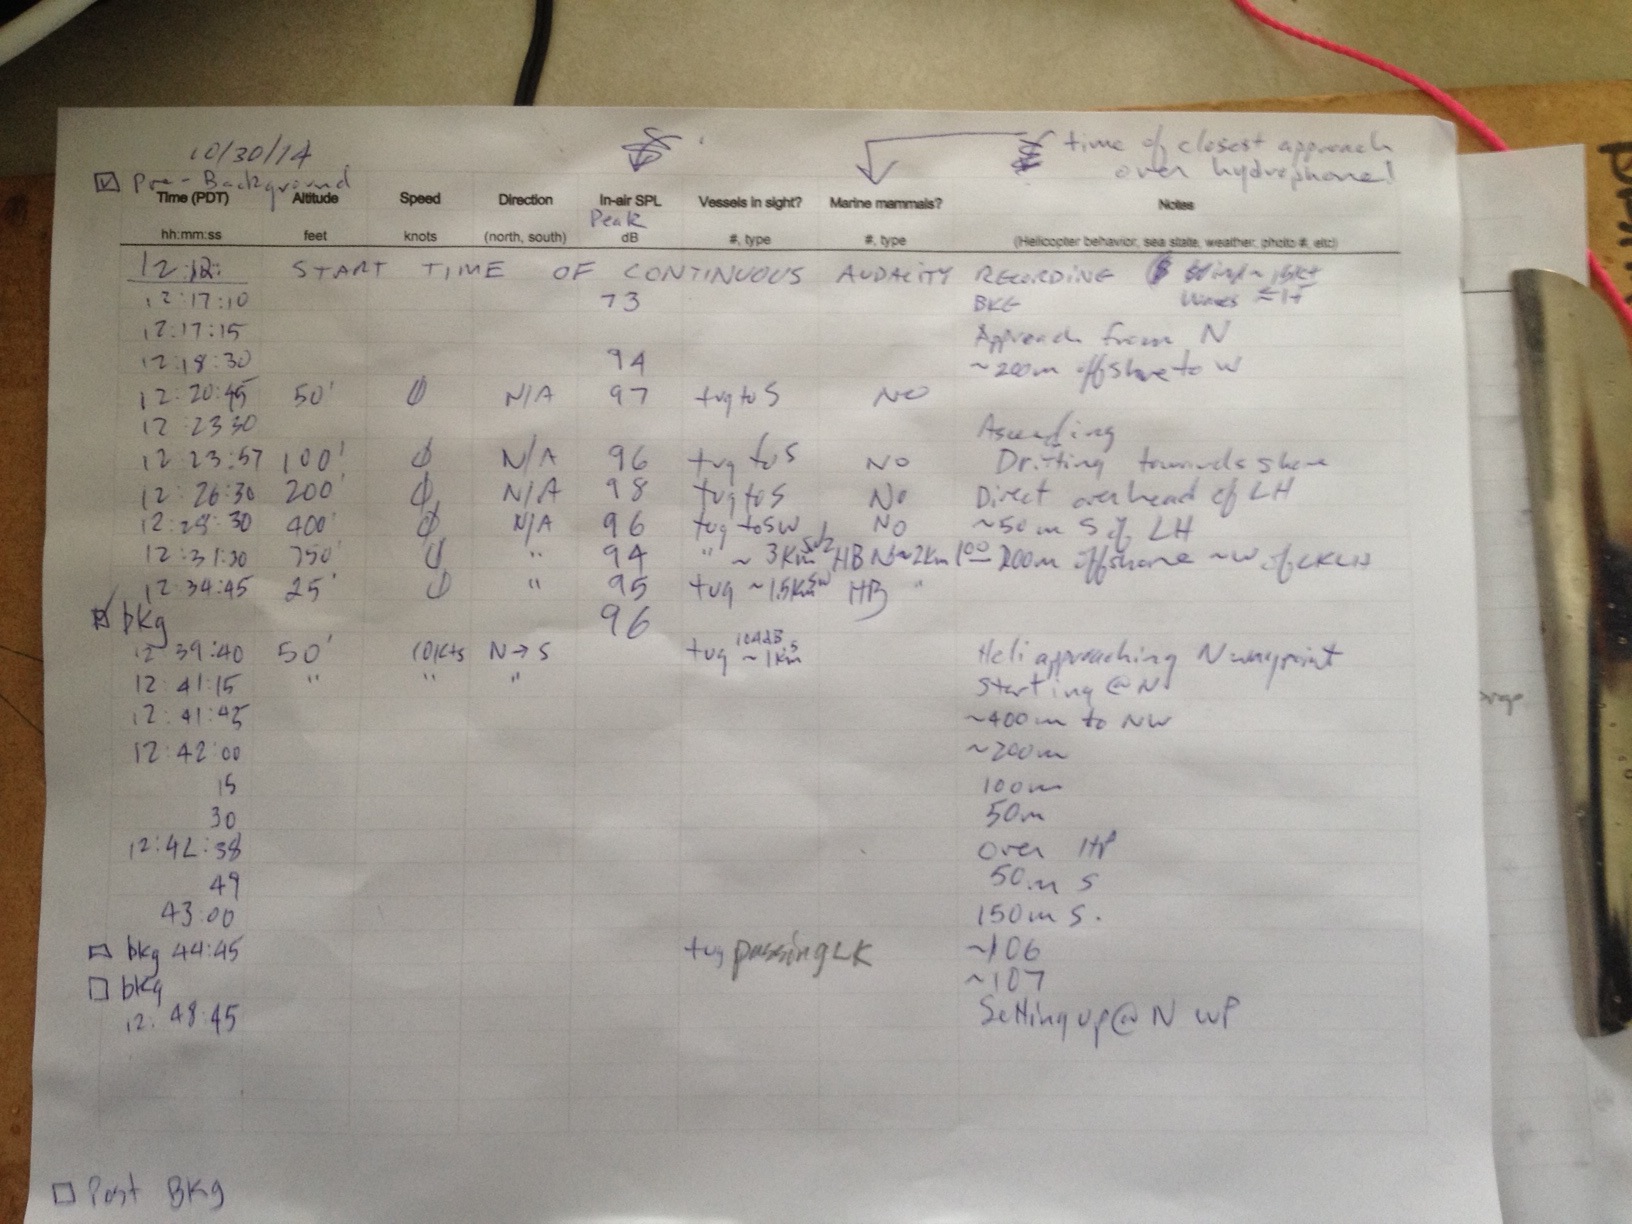 10/30/14
time of closest approach
over hydrophone!
☑ Pre-Background
Time (PDT) Altitude Speed Direction In-air SPL Vessels in sight? Marine mammals? Notes
Peak
hh:mm:ss feet knots (north, south) dB #, type #, type (Helicopter behavior, sea state, weather, photo #, etc)
12:12: START TIME OF CONTINUOUS AUDACITY RECORDING
12:17:10 73 BKG
12:17:15 Approach from N
12:18:30 94 ~200m offshore to W
12:20:45 50' ∅ N/A 97 tug to S NO
12:23 30 Ascending
12:23:57 100' ∅ N/A 96 tug to S NO Drifting towards shore
12:26:30 200' ∅ N/A 98 tug to S No Direct overhead of LH
12:28:30 400' ∅ N/A 96 tug to SW NO ~50m S of LH
12:31:30 750' ∅ " 94 " ~3km HB N~2km 100-200m offshore ~W of
12:34:45 25' ∅ " 95 tug ~1.5km SW HB "
☑ bkg 96
12:39:40 50' 10kts N→S tug 104dB ~1km S Heli approaching N waypoint
12:41:15 " " " Starting @ N
12:41:45 ~400m to NW
12:42:00 ~200m
15 100m
30 50m
12:42:38 over HP
49 50m S
43:00 150m S.
☐ bkg 44:45 tug passing LK ~106
☐ bkg ~107
12:48:45 Setting up @ N WP
☐ Post BKg